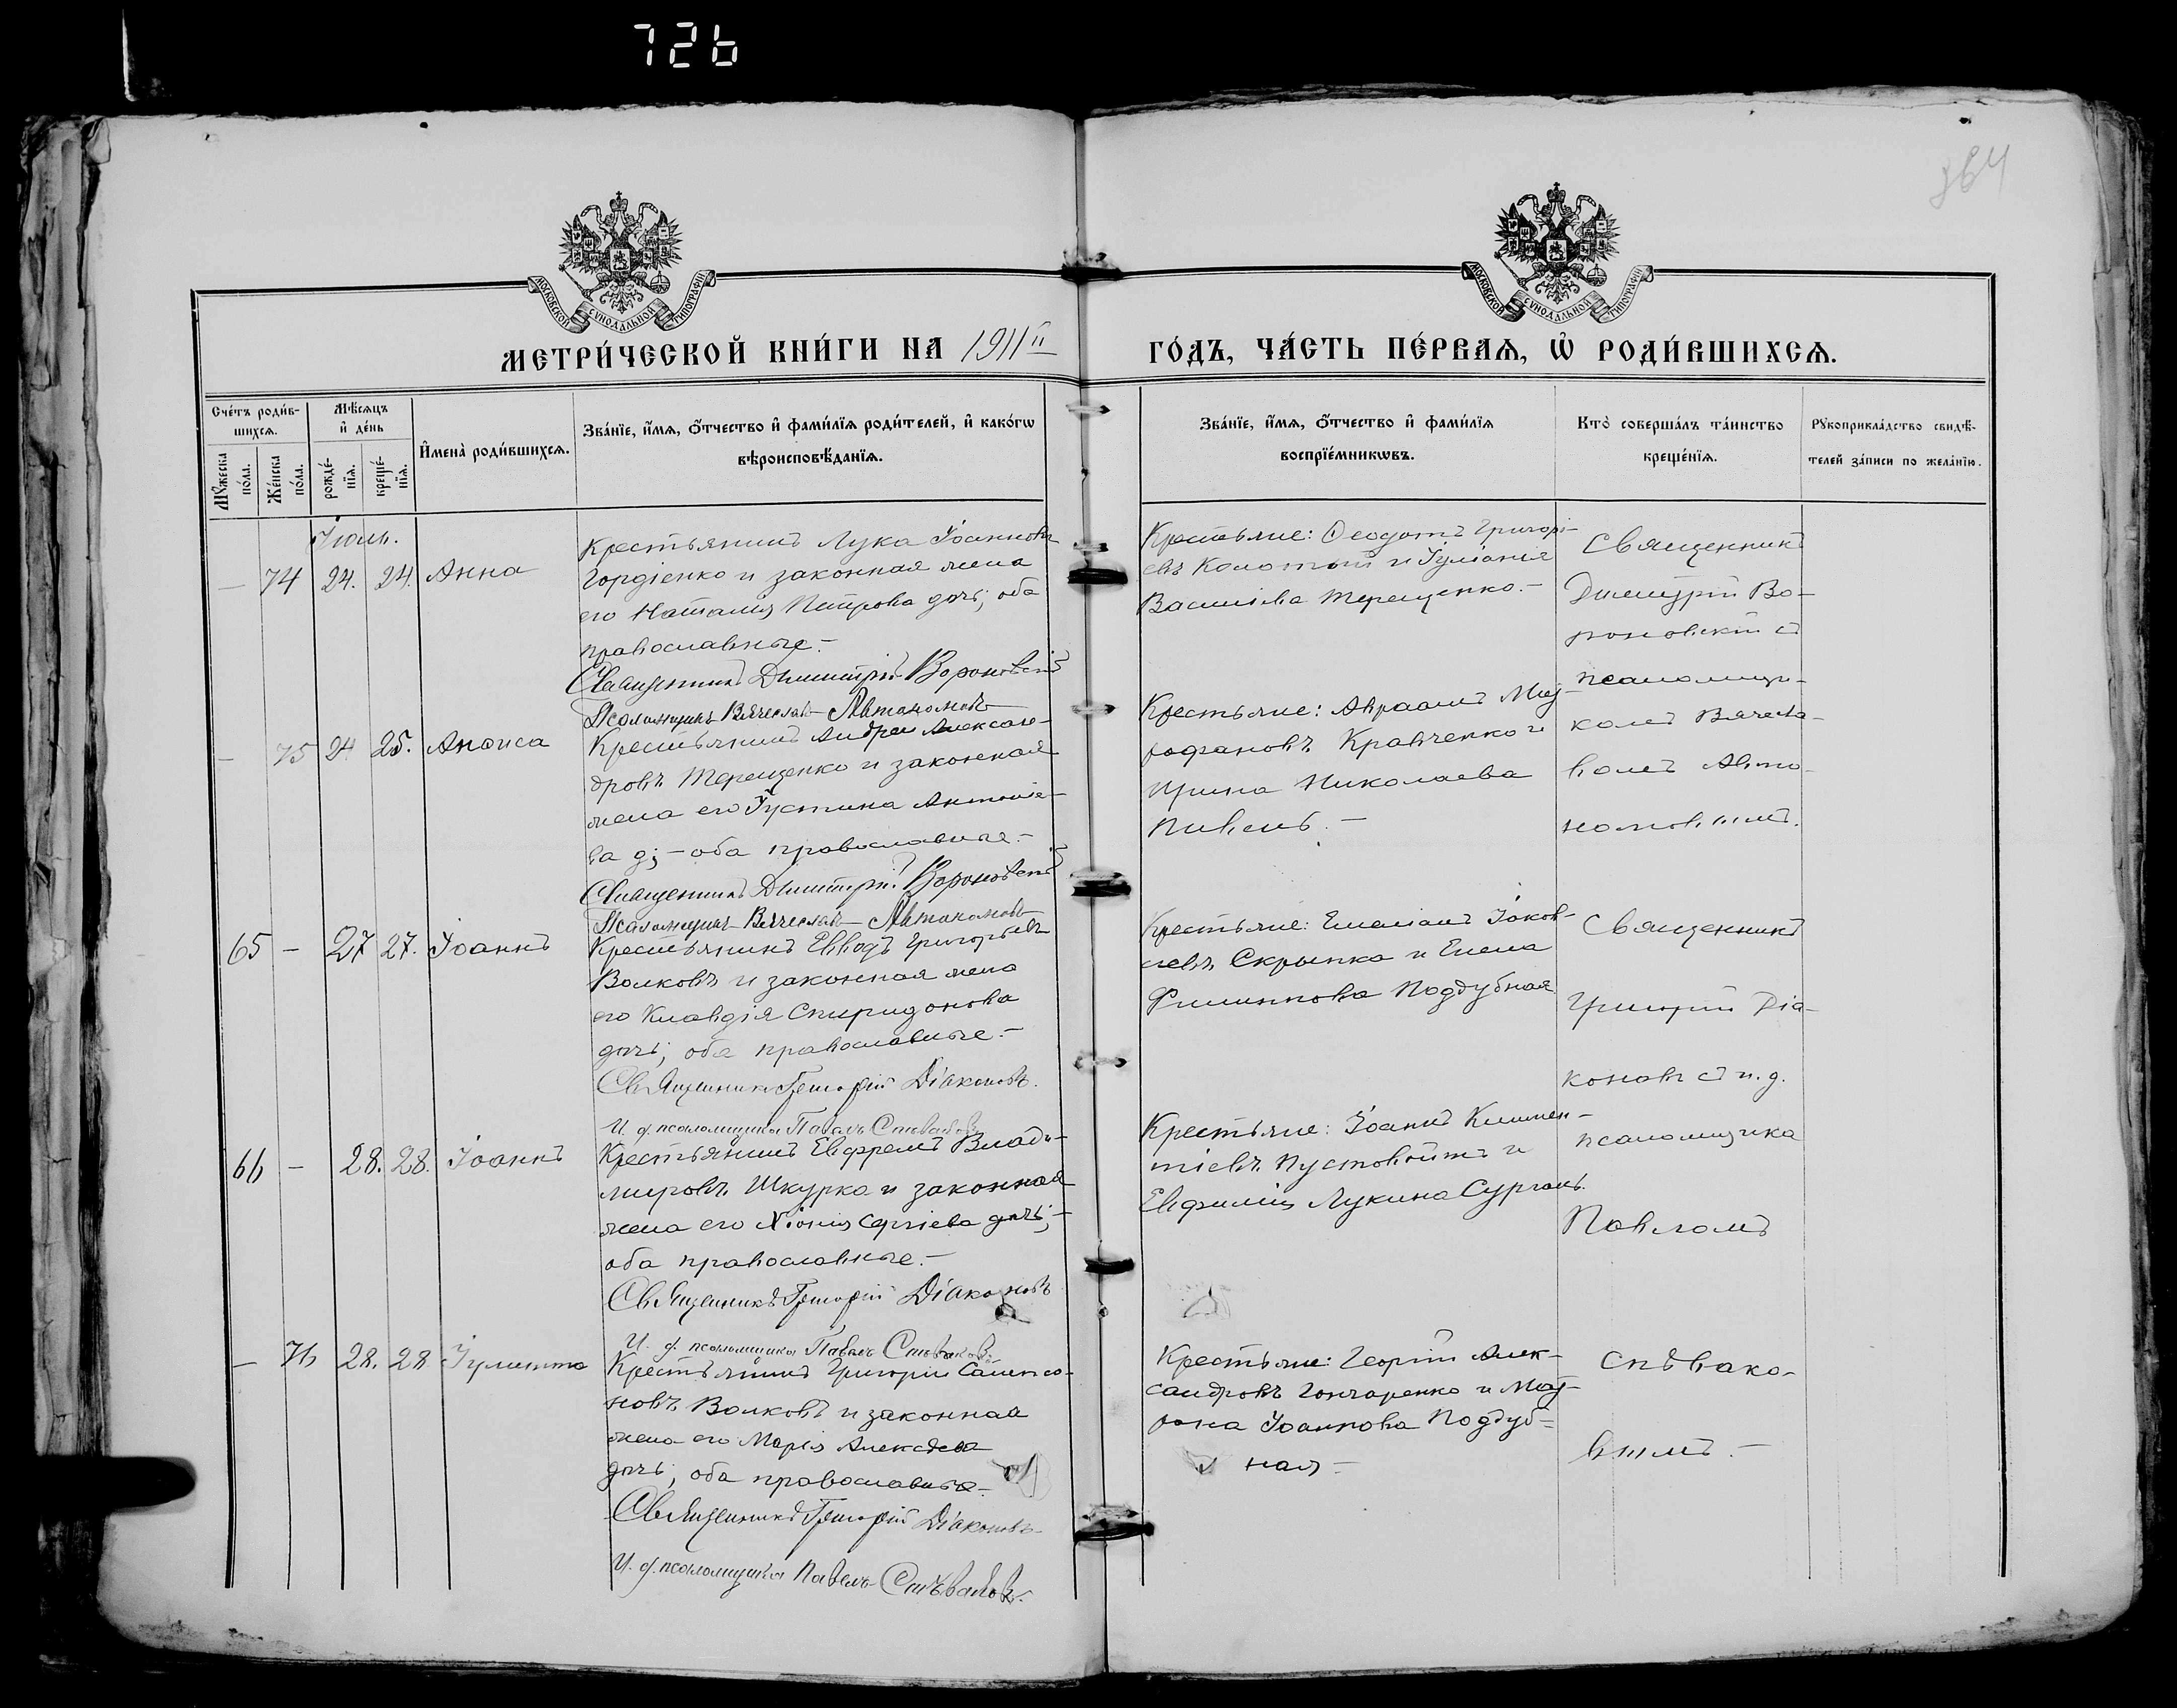 726
364
МОСКОВСКОЙ СѴНОДАЛЬНОЙ ТИПОГРАФІИ
МОСКОВСКОЙ СѴНОДАЛЬНОЙ ТИПОГРАФІИ
МЕТРИ́ЧЕСКОЙ КНИ́ГИ НА 1911й
ГО́ДЪ, ЧА́СТЬ ПЕ́РВАѦ, Ѡ҆ РОДИ́ВШИХСѦ.
Сче́тъ роди́в-
шихсѧ.
Мꙋ́жеска по́ла.
Же́нска по́ла.
Мѣ́сѧцъ
и҆ де́нь
рожде́-
нїѧ.
креще́-
нїѧ.
И҆мена̀ роди́вшихсѧ.
Зва́нїе, и҆́мѧ, ѻ҆́тчество и҆ фами́лїѧ роди́телей, и҆ како́гѡ
вѣроисповѣ́данїѧ.
Зва́нїе, и҆́мѧ, ѻ҆́тчество и҆ фами́лїѧ
воспрїе́мникѡвъ.
Кто̀ соверша́лъ та́инство
креще́нїѧ.
Рꙋкоприкла́дство свидѣ́-
телей за́писи по жела́нїю.
Іюль.
— 74 24. 24. Анна
Крестьянинъ Лука Іоанновъ
Гордіенко и законная жена
его Наталія Петрова дочь; оба
православные.—
Священникъ Димитрій Вороновскій
Псаломщикъ Вячеславъ Автономовъ
Крестьяне: Ѳеодотъ Григорі-
евъ Колотій и Іуліанія
Василіева Терещенко.—
Священникъ
Димитрій Во-
роновскій съ
псаломщи-
комъ Вячесла-
вомъ Авто-
номовымъ.
— 75 24 25. Анѳиса
Крестьянинъ Андрей Алексан-
дровъ Терещенко и законная
жена его Іустина Антоніе-
ва д; — оба православные.—
Священникъ Димитрій Вороновскій
Псаломщикъ Вячеславъ Автономовъ
Крестьяне: Авраамъ Мит-
рофановъ Кравченко и
Ирина Николаева
Пивень.—
65 — 27 27. Іоаннъ
Крестьянинъ Евводъ Григорьевъ
Волковъ и законная жена
его Клавдія Спиридонова
дочь; оба православные.—
Священникъ Григорій Діаконовъ.
И. д. псаломщика Павелъ Спѣваковъ
Крестьяне: Емеліанъ Іаков-
левъ Скрыпка и Елена
Филиппова Поддубная
Священникъ
Григорій Діа-
коновъ съ и. д.
псаломщика
Павломъ
Спѣвако-
вымъ.—
66 — 28. 28. Іоаннъ
Крестьянинъ Евфремъ Влади-
міровъ Шкурка и законная
жена его Хіонія Сергіева дочь;—
оба православные.—
Священникъ Григорій Діаконовъ
И. д. псаломщика Павелъ Спѣваковъ
Крестьяне: Іоаннъ Климен-
тіевъ Пустовойтъ и
Евфимія Лукина Сургань.
— 76 28. 28 Іулитта
Крестьянинъ Григорій Сампсо-
новъ Волковъ и законная
жена его Марія Алексѣева
дочь; оба православные.—
Священникъ Григорій Діаконовъ
И. д. псаломщика Павелъ Спѣваковъ.
Крестьяне: Георгій Алек-
сандровъ Гончаренко и Мат-
рона Іоаннова Поддуб-
ная.—